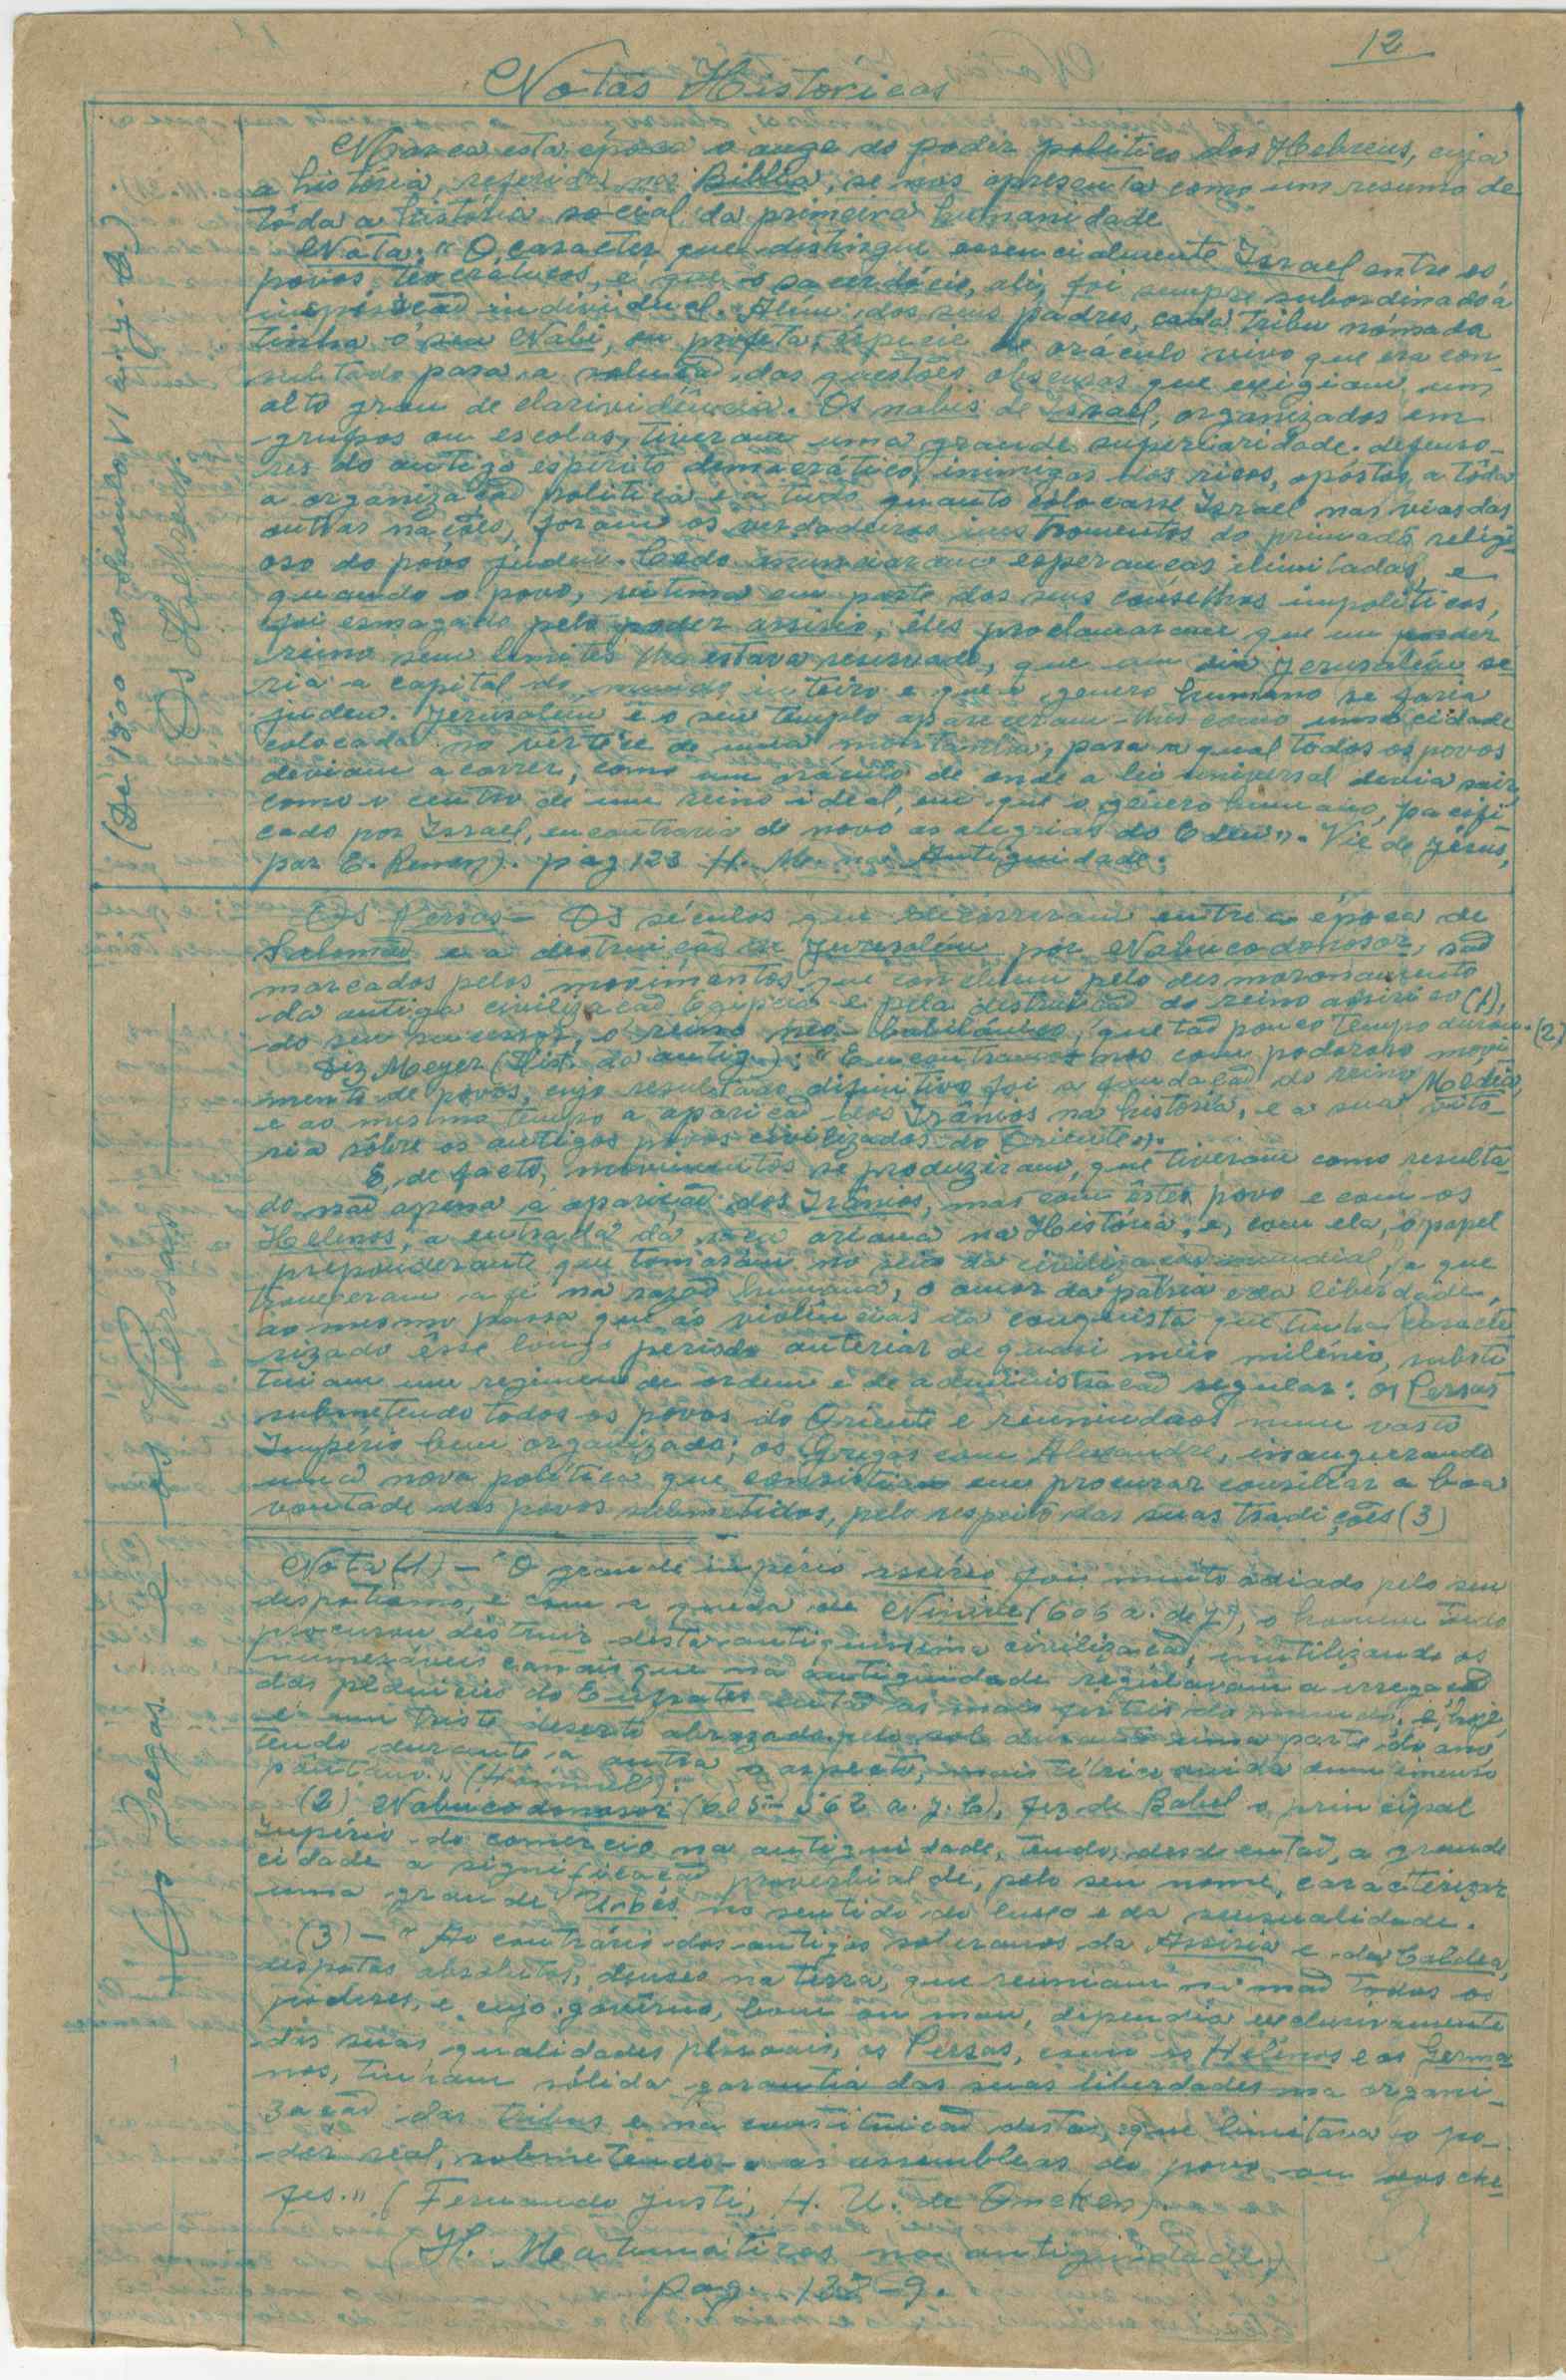 12
Notas Históricas
(De 1300 ao século VI a. J. C.)
Os Hebreus.
Marca esta época o auge do poder politico dos Hebreus, cuja
a história, referida na Biblia, se nos apresenta como um resumo de
tôda a história social da primeira humanidade
Nota: " O caracter que distingue essencialmente Israel entre os
povos teocráticos, é que o sacerdócio, ali, foi sempre subordinado á
inspiração individual. Além dos seus padres, cada tribu nómada
tinha o seu Nabi, ou profeta, espécie de oráculo vivo que era con
sultado para a solução das questões obscuras que exigiam um
alto grau de clarividência. Os nabis de Israel, organizados em
grupos ou escolas, tiveram uma grande superioridade. defenso-
res do antigo espírito democrático, inimigos dos ricos, opóstos a tôda
a organização politica e a tudo quanto colocasse Israel nas vias das
outras nações, foram os verdadeiros instromentos do primado religi
oso do povo judeu. Cedo anunciaram esperanças ilimitadas, e
quando o povo, vitima em parte dos seus conselhos impoliticos,
foi esmagado pelo poder assirio, êles proclamaram que um
reino sem limites lhe estava reservado, que um dia Jerusalém se
ria a capital do mundo inteiro e que o genero humano se faria
judeu. Jerusalém e o seu templo apareceram-lhes como uma cidade
colocada no vértice de uma montanha, para a qual todos os povos
deviam acorrer, como um oráculo de onde a lei universal devia sair,
como o centro de um reino ideal, em que o género humano, pacifi
cado por Israel, encontraria de novo as alegrias do Eden". Vie de Jésus,
par E. Renan). pag 123 H. M. na Antiguidade.
Os Gregos e os Persas
Os Persas - Os séculos que decorreram entre a época de
Salomão e a destruição de Jerusalém por Nabucodonosor, são
marcados pelos movimentos que concluem pelo desmoronamento
da antiga civilização Egipcia e pela destruição do reino assirico (1),
do seu sucessor, o reino neo-babilónico, que tão pouco tempo durou. (2)
Diz Meyer (Hist. da antig.): " Encontramo-nos com podoroso movi
mento de povos, cujo resultado difinitivo foi a fundação do reino Médio,
e ao mesmo tempo a aparição dos Irânios na história, e a sua vitó-
ria sôbre os antigos povos civilizados do Oriente".
E, de facto, movimentos se produziram, que tiveram como resulta
do não apena a aparição dos Irânios, mas com êstes povo e com os
Helenos, a entrada da raça ariana na História, e, com ela, o papel
preponderante que tomaram no seio da civilização mundial, a que
trouxeram a fé na razão humana, o amor da pátria e da liberdade,
ao mesmo passo que ás violências da conquista que tinha caracte
rizado êsse longo periodo anterior de quasi meio milénio, substi
tuiam um regimen de ordem e de administração regular: os Persas
submetendo todos os povos do Oriente e reunindoos num vasto
Império bem organizado; os Gregos com Alexandre, inaugurando
uma nova politica que consistia em procurar consiliar a boa
vontade dos povos submetidos, pelo respeito das suas tradições (3)
Nota (1) - " O grande império assirio foi muito odiado pelo seu
despotismo, e com a queda de Ninive (606 a. de J.), o homem tudo
procurou destruir desta antiquissima civilização, inutilizando os
numeráveis canais que na antiguidade regulavam a irregação
das planicies do Eufrates então as mais ferteis do mundo, e, hoje,
é um triste deserto abrazado pelo sol durante uma parte do ano,
tendo durante a outra o aspecto, mais tétrico ainda dum imenso
pântano." (Himmel).
(2) Nabucodonosor (605 - 562 a. J. C), fez de Babel o principal
Império do comercio na antiguidade, tendo, desde então, a grande
cidade a significação proverbial de, pelo seu nome, caracterizar
uma grande Urbes no sentido do luxo e da sensualidade.
(3) - " Ao contrário dos antigos soberanos da Assiria e da Caldea,
despotas absolutos, deuses na terra, que reuniam na mão todos os
poderes, e cujo govêrno, bom ou mau, dependia exclusivamente
das suas qualidades pessoais, os Persas, como os Helénos e os Germa
nos, tinham sólida garantia das suas liberdades na organi-
zação das tribus e na constituição destas, que limitava o po-
der real, submetendo-o ás assembleas do povo ou dos che
fes." (Fernando Justi, H. U. de Oncken).
(H. Matemáticas na antiguidade)
pag. 138-9.